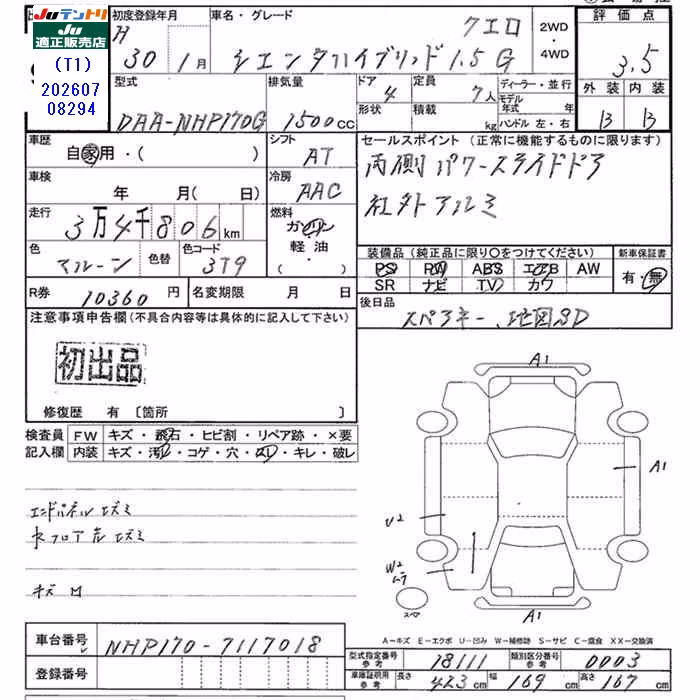 Juテントリ
Ju
適正販売店
(T1)
202607
08294
初度登録年月
H 30 1月
車名・グレード
クエロ
シエンタハイブリッド 1.5 G
2WD
・
4WD
評価点
3.5
外装 内装
B B
型式
DAA-NHP170G
排気量
1500cc
ドア
4
形状
定員
7人
積載
kg
ディーラー・並行
モデル
年式 年
ハンドル 左・右
車歴
自家用・( )
シフト
AT
セールスポイント (正常に機能するものに限ります)
両側パワースライドドア
社外アルミ
車検
年 月( 日)
冷房
AAC
走行
3万4千806km
燃料
ガソリン
軽・油
・( )
色
マルーン
色替
色コード
3T9
装備品 (純正品に限り○をつけてください)
PS PW ABS エアB AW
SR ナビ TV カワ
新車保証書
有・無
R券 10360円
名変期限 月 日
後日品
スペアキー、地図SD
注意事項申告欄(不具合内容等は具体的に記入して下さい)
初出品
修復歴 有 〔箇所 〕
検査員
記入欄
FW キズ・飛石・ヒビ割・リペア跡・×要
内装 キズ・汚レ・コゲ・穴・スレ・キレ・破レ
エンドパネルエズミ
キズ
A1
A1
U2
W2
ムラ
スペア
A1
A-キズ E-エクボ U-凹み W-補修跡 S-サビ C-腐食 XX-交換済
車台番号 NHP170-7117018
登録番号
型式指定番号
参考
18111
類別区分番号
参考
0003
車庫証明用
参考
長さ 423cm 幅 169cm 高さ 167cm